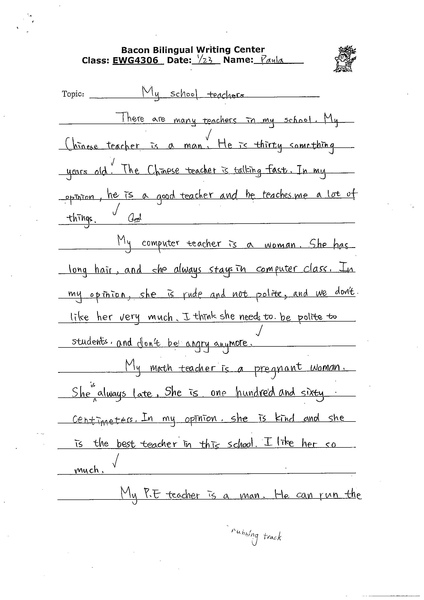 Bacon Bilingual Writing Center
Class: EWG4306 Date: 1/23 Name: Paula
Topic: My school teachers
There are many teachers in my school. My
Chinese teacher is a man. He is thirty something
years old. The Chinese teacher is talking fast. In my
opinion, he is a good teacher and he teaches me a lot of
things.
My computer teacher is a woman. She has
long hair, and she always stays in computer class. In
my opinion, she is rude and not polite, and we don't
like her very much. I think she needs to be polite to
students. and don't be angry anymore.
My math teacher is a pregnant woman.
She is always late. She is one hundred and sixty
centimeters. In my opinion. she is kind and she
is the best teacher in this school. I like her so
much.
My P.E teacher is a man. He can run the
running track